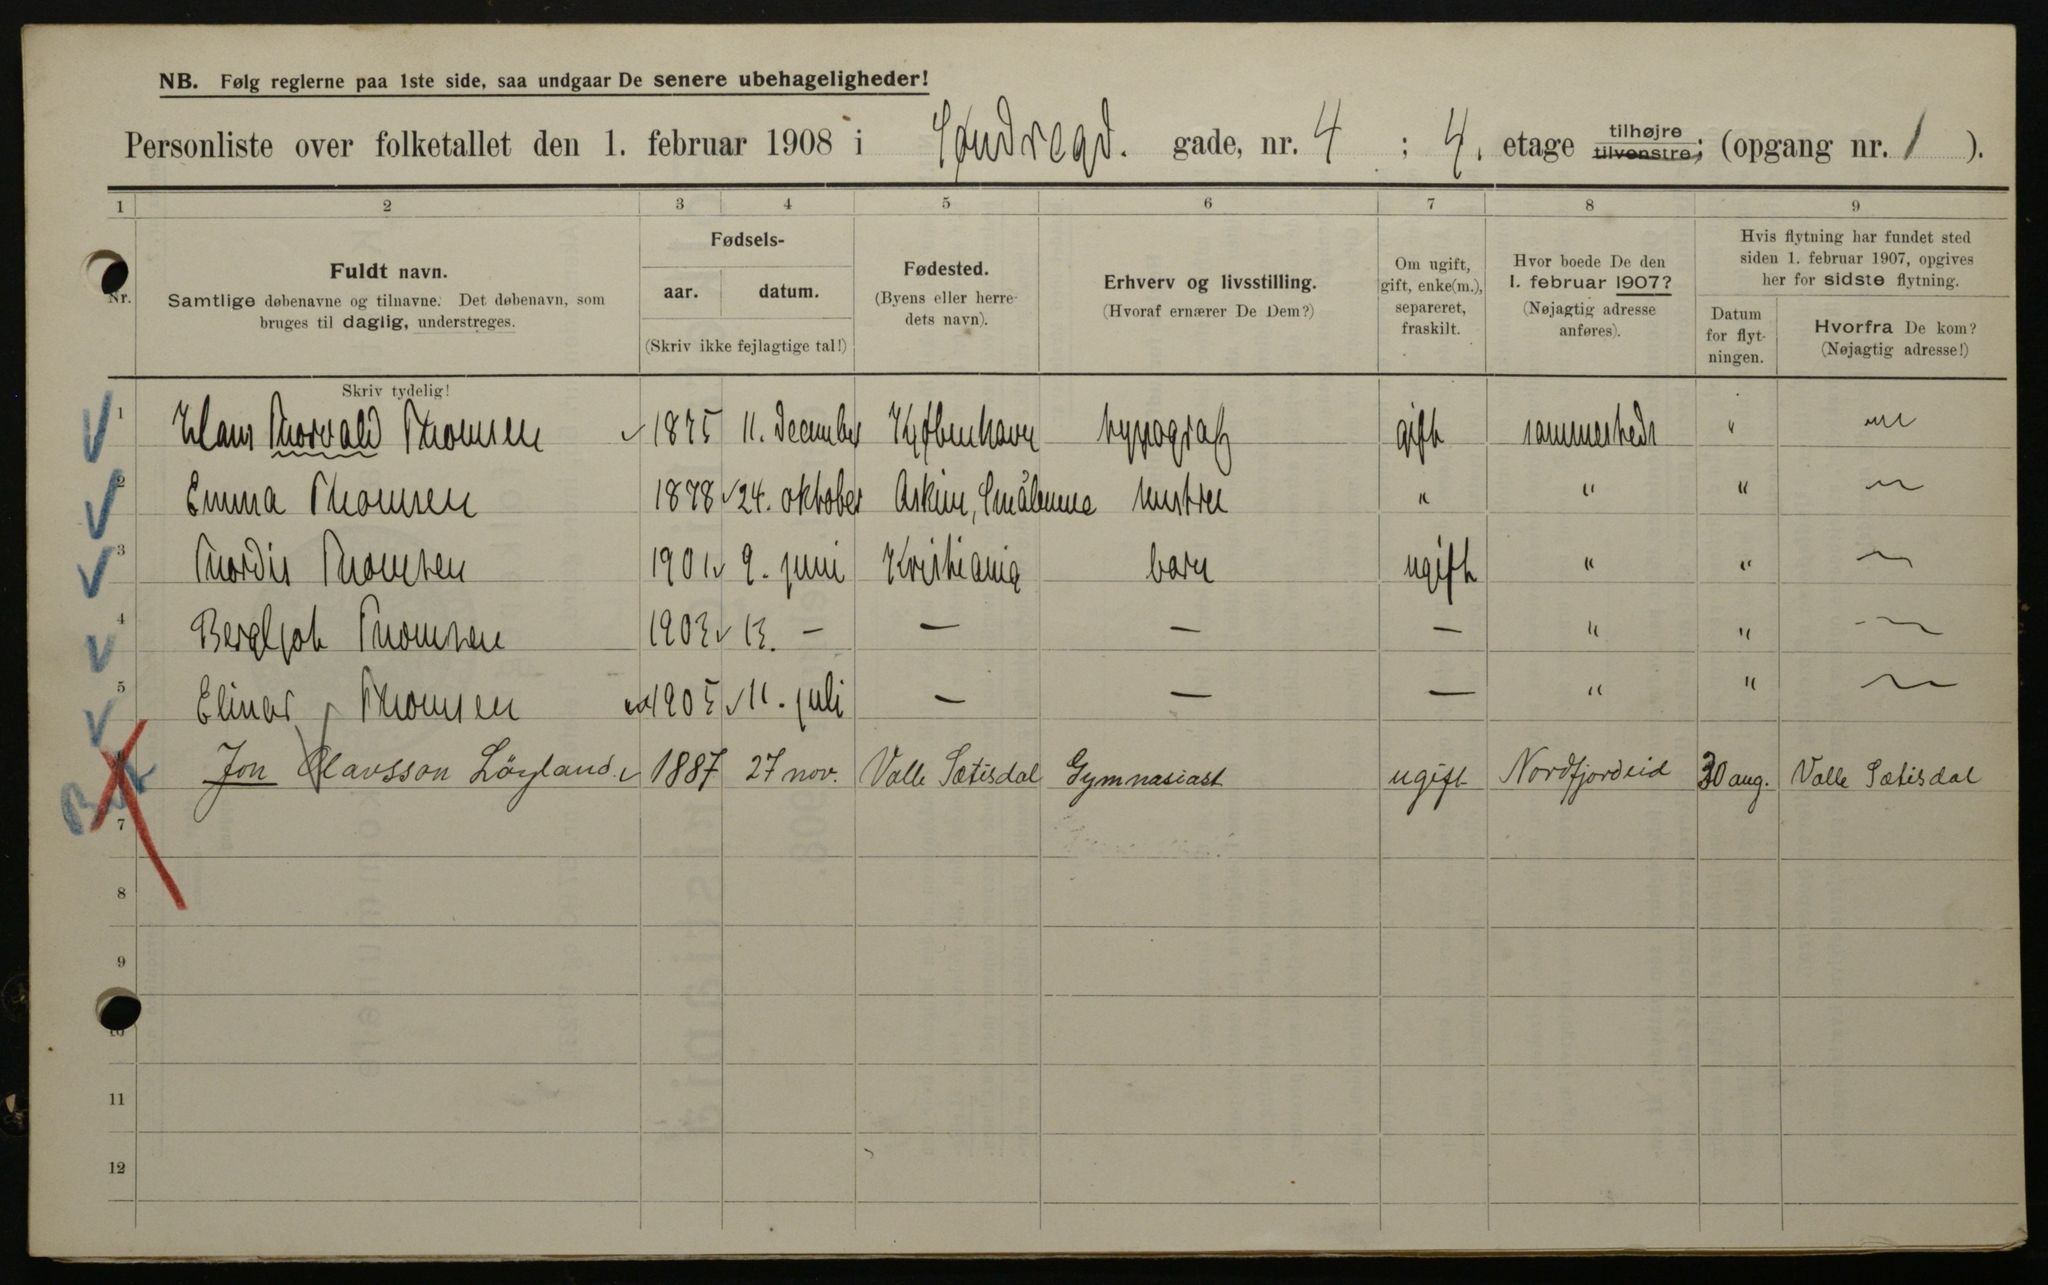 NB. Følg reglerne paa 1ste side, saa undgaar De senere ubehageligheder!
Personliste over folketallet den 1. februar 1908 i Søndregd. gade, nr. 4 ; 4. etage tilhøjre tilvenstre; (opgang nr. 1 ).
1 2 3 4 5 6 7 8 9
Nr.
Fuldt navn.
Samtlige døbenavne og tilnavne. Det døbenavn, som
bruges til daglig, understreges.
Skriv tydelig!
Fødsels-
aar. datum.
(Skriv ikke fejlagtige tal!)
Fødested.
(Byens eller herre-
dets navn).
Erhverv og livsstilling.
(Hvoraf ernærer De Dem?)
Om ugift,
gift, enke(m.),
separeret,
fraskilt.
Hvor boede De den
1. februar 1907?
(Nøjagtig adresse
anføres).
Hvis flytning har fundet sted
siden 1. februar 1907, opgives
her for sidste flytning.
Datum
for flyt-
ningen.
Hvorfra De kom?
(Nøjagtig adresse!)
1 Hans Thorvald Thomsen 1875 11. december København typograf gift sammesteds "
2 Emma Thomsen 1878 24. oktober Askim, Smålenene hustru " " "
3 Thordis Thomsen 1901 9. juni Kristiania barn ugift " "
4 Bergljot Thomsen 1903 13. — — — — " "
5 Elinor Thomsen 1905 11. juli — — — " "
Jon Olavsson Löyland 1887 27 nov. Valle Sætisdal Gymnasiast ugift Nordfjordeid 30 aug. Valle Sætisdal
7
8
9
10
11
12